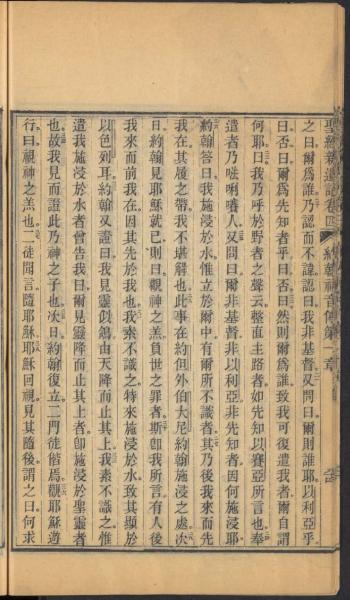 聖經新遺詔卷四 約翰福音傳第一章
之曰爾為誰乃認而不諱認曰我非基督又問曰爾則誰耶以利亞乎
曰否曰爾為先知者乎曰否曰然則爾為誰致我可復遣我者爾自謂
何耶曰我乃呼於野者之聲云整直主路者如先知以賽亞所言也奉
遣者乃𠵽唎㘔人又問曰爾非基督非以利亞非先知者因何施浸耶
約翰答曰我施浸於水惟立於爾中有爾所不識者其乃後我來而先
我在其履之帶我不堪解也此事在約但外伯大尼約翰施浸之處次
日約翰見耶穌就己則曰觀神之羔負世之罪者斯卽我所言有人後
我來而前我在因其先於我也我素不識之特來施浸於水致其顯於
以色列耳約翰又證曰我見靈似鴿由天降而止其上我素不識之惟
遣我施浸於水者曾告我曰爾見靈降而止其上者卽施浸於聖靈者
也故我見而證此乃神之子也次日約翰復立二門徒偕焉觀耶穌遊
行曰視神之羔也二徒聞言隨耶穌耶穌回視見其隨後謂之曰何求